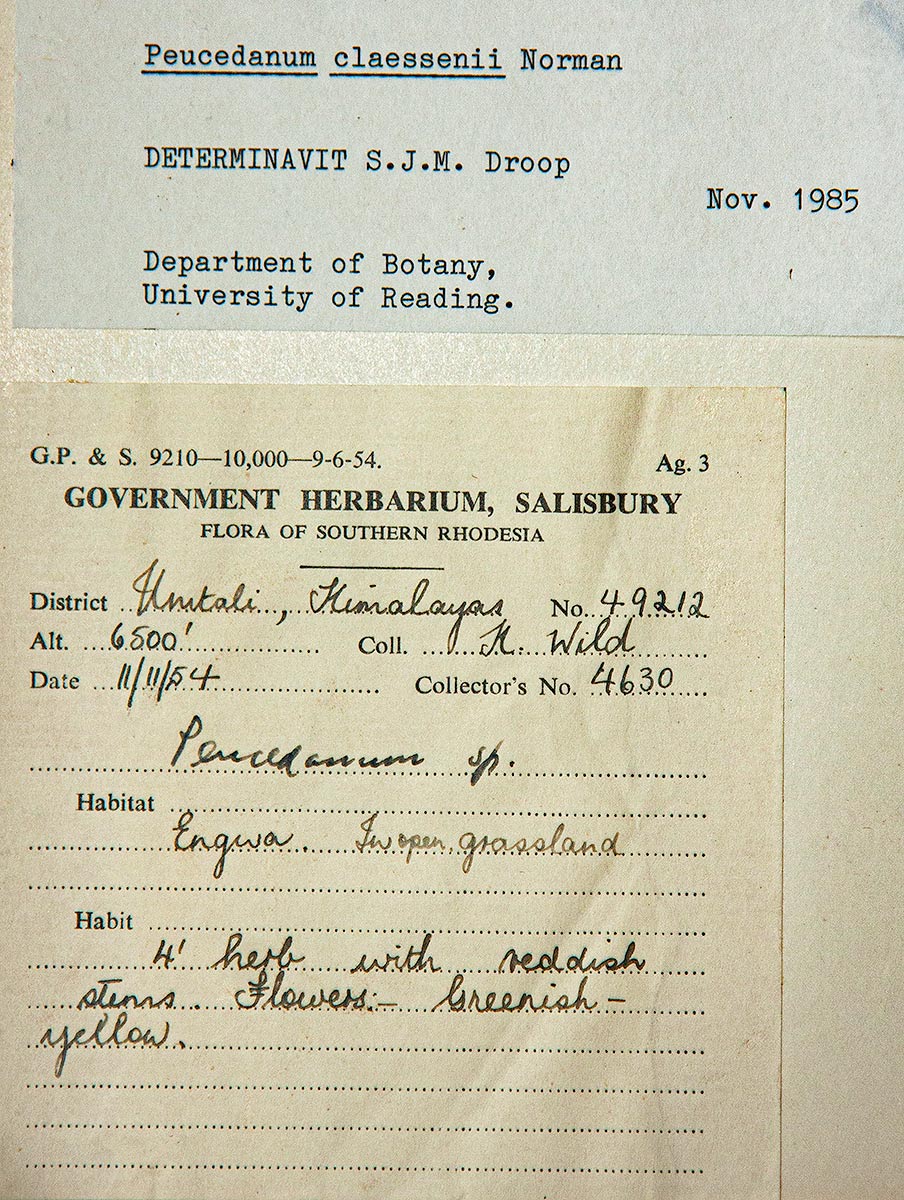 Peucedanum claessenii Norman
DETERMINAVIT S.J.M. Droop
Nov. 1985
Department of Botany,
University of Reading.
G.P. & S. 9210—10,000—9-6-54.
Ag. 3
GOVERNMENT HERBARIUM, SALISBURY
FLORA OF SOUTHERN RHODESIA
District Umtali, Himalayas No. 49212
Alt. 6500' Coll. H. Wild
Date 11/11/54 Collector's No. 4630
Peucedanum sp.
Habitat
Engwa. In open grassland
Habit
4' herb with reddish
stems. Flowers:- Greenish-
yellow.